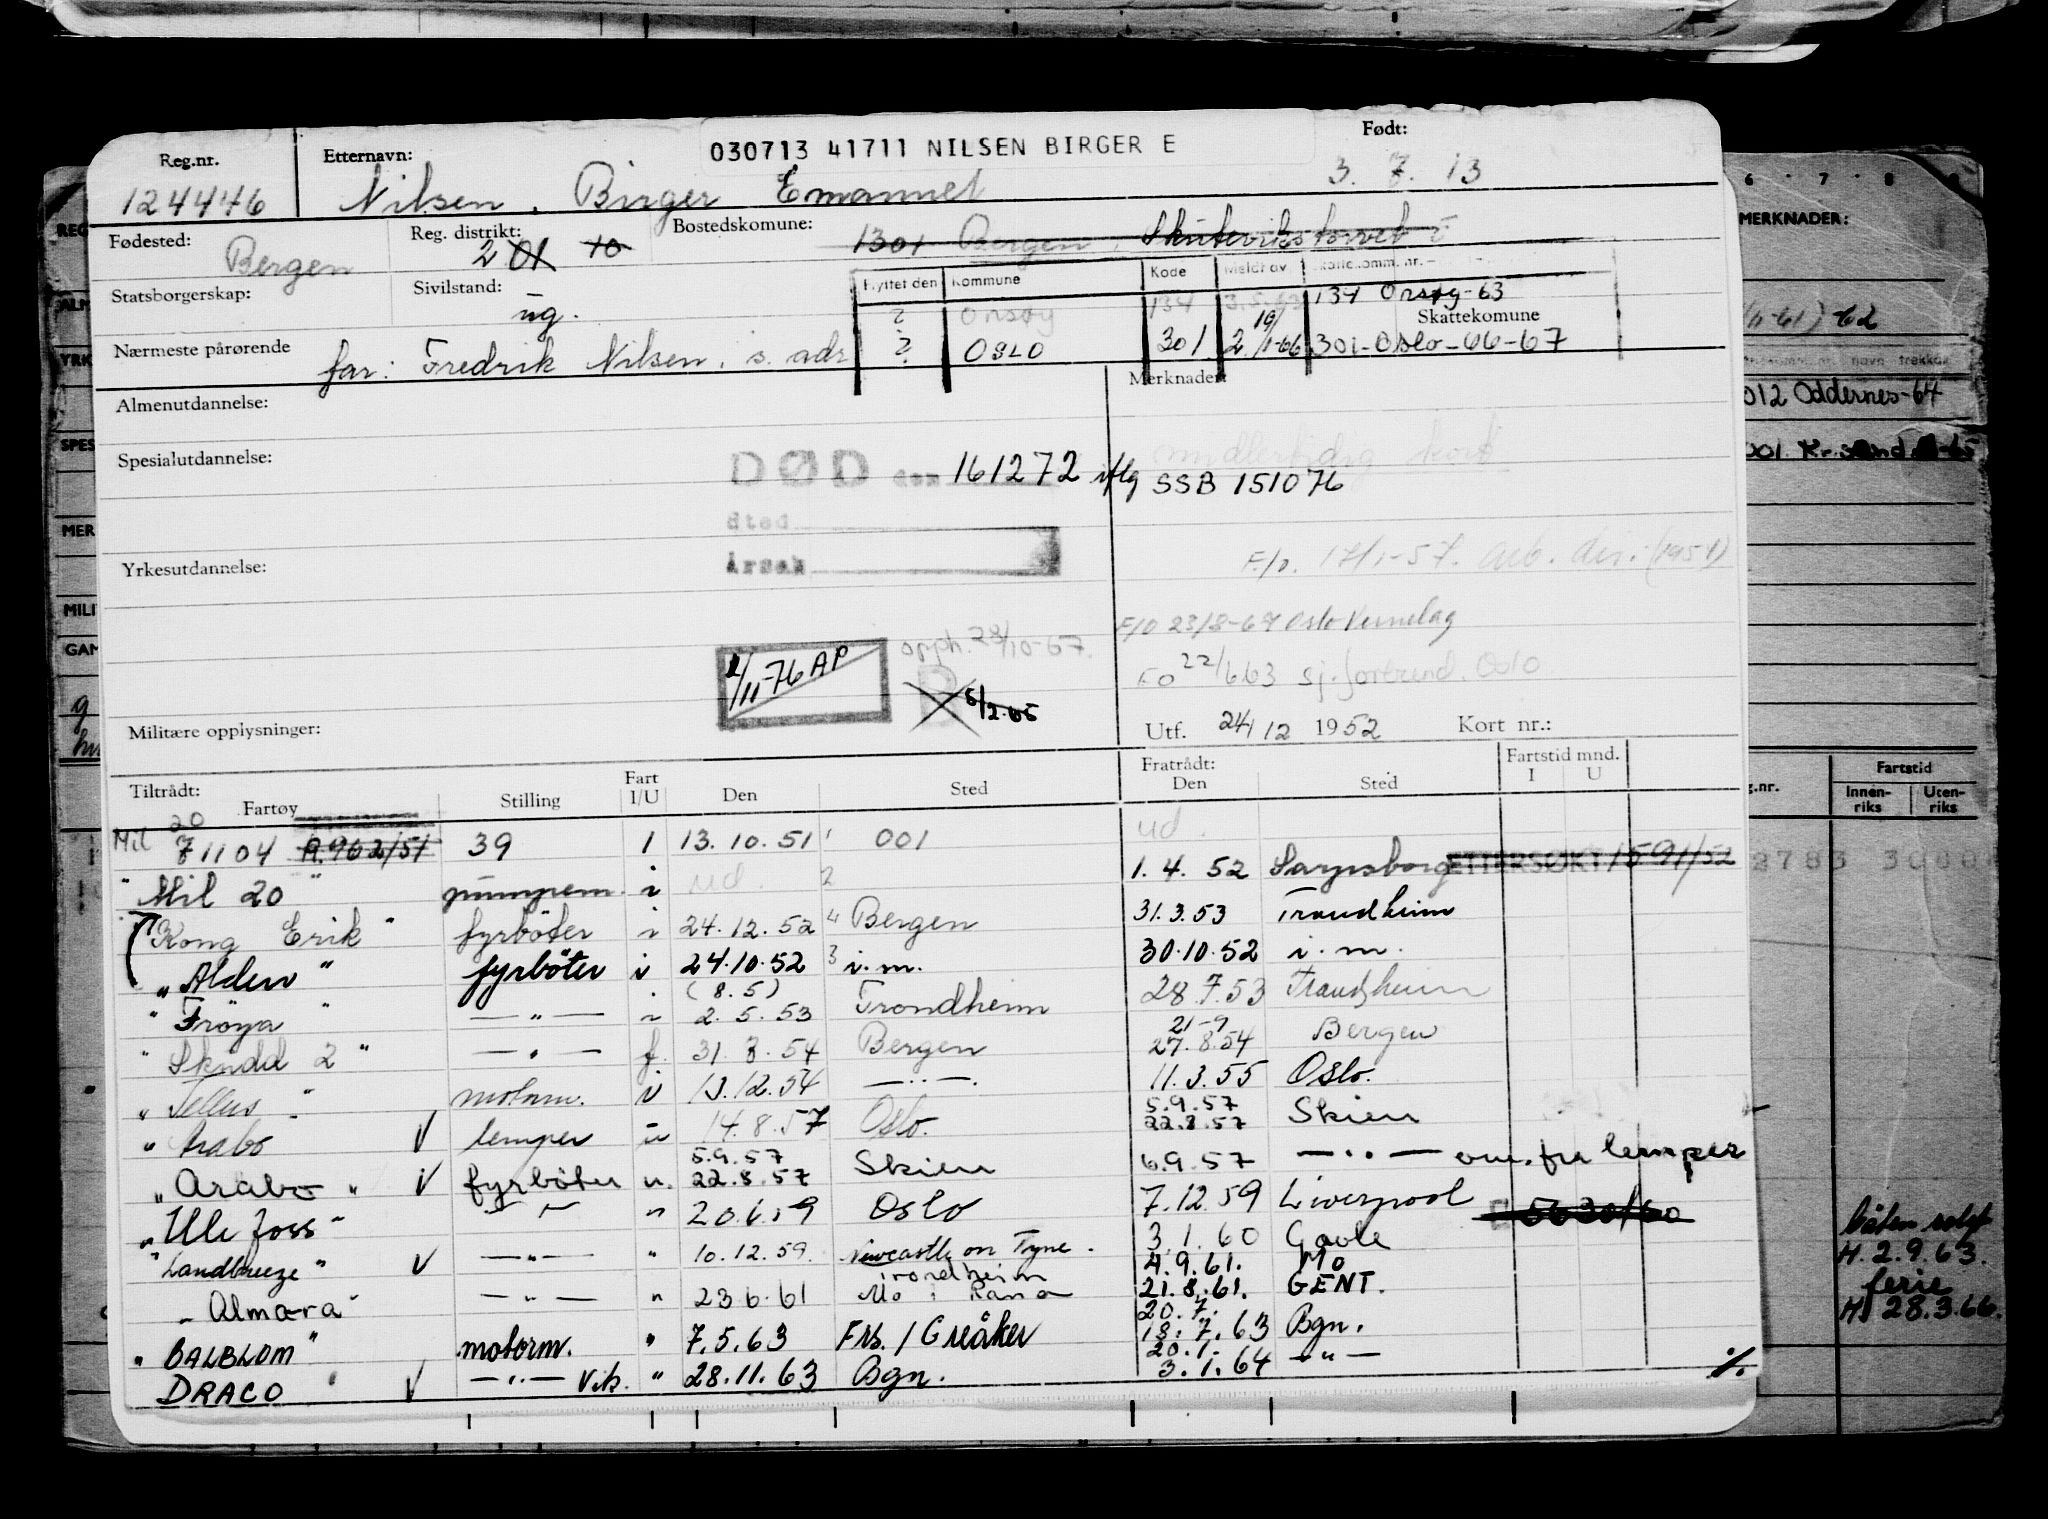 030713 41711 NILSEN BIRGER E
Reg.nr. Etternavn: Født:
124446 Nilsen, Birger Emanuel 3. 7. 13
Fødested: Bergen Reg. distrikt: 2 01 10 Bostedskomune: 1301 Bergen, Skuteviks torvet
Flyttet den Kommune Kode Meldt av Skattekomm. nr.
Statsborgerskap: Sivilstand: ug.
? Ørsøg 134 3.5.63 134 Ørsøg-63
Skattekomune
? OSLO 301 2 10/1-66 301-Oslo-66-67
Nærmeste pårørende far: Fredrik Nilsen, s. adr
Almenutdannelse: Merknader:
Spesialutdannelse: midlertidig kort
DØD den 161272 iflg SSB 151076
Sted
Årsak
Yrkesutdannelse: F/o. 17/1-57. arb. dir. (1951)
F/O 23/8-67 Oslo Vernelag
opph. 28/10-67.
2/11-76 AP
FO 22/6 63 sj. forbund. Oslo
D 5/2-65
Militære opplysninger: Utf. 24/12 1952 Kort nr.:
Tiltrådt: Fratrådt: Fartstid mnd.
Fartøy Stilling Fart I/U Den Sted Den Sted I U
20
Mil 71104 A.962/51 39 1 13.10.51 1 001 ud.
" Mil 20 " pumpem. i ud. 2 1. 4. 52 Sarpsborg ETTERSØKT 1591/52
" Kong Erik " fyrbøter i 24.12.52 4 Bergen 31.3.53 Trondheim
" Alden " fyrbøter i 24.10.52 3 i.m. 30.10.52 i.m.
(8.5)
" Frøya " — " — i 2.5.53 Trondheim 28.7.53 Trondheim
21-9
" Skudd 2 " — " — f. 31.3.54 Bergen 27.8.54 Bergen
" Tellus " motorm. i 13.12.54 — " —. 11.3.55 Oslo.
5.9.57
" Arabo V lemper u 14.8.57 Oslo. 22.8.57 Skien
5.9.57
" Arabo " V fyrbøter u. 22.8.57 Skien 6.9.57 — " — om. fra lemper
" Ule foss " — " — " 20.6.59 Oslo 7.12.59 Liverpool 5630/60
" Landbreeze " V — " — " 10.12.59. Newcastle on Tyne. 3.1.60 Goole
Trondheim 4.9.61. Mo
" Almara " — " — " 23 6.61 Mo i Rana 21.8.61. GENT.
20.7.
" BALBLOM " motorm. " 7.5.63 Frs. / Greåker 18.7.63 Bgn.
20.1.
DRACO " V — " — Vik. " 28.11.63 Bgn. 3.1.64 — " — ./.
6 7 8 9
MERKNADER:
-62
012 Oddernes-64
001. Kr.sand -65
Fartstid
Innenriks Utenriks
båten solgt
H. 2.9.63.
ferie
H. 28.3.66.
REG
YRK
SPES
MER
MILI